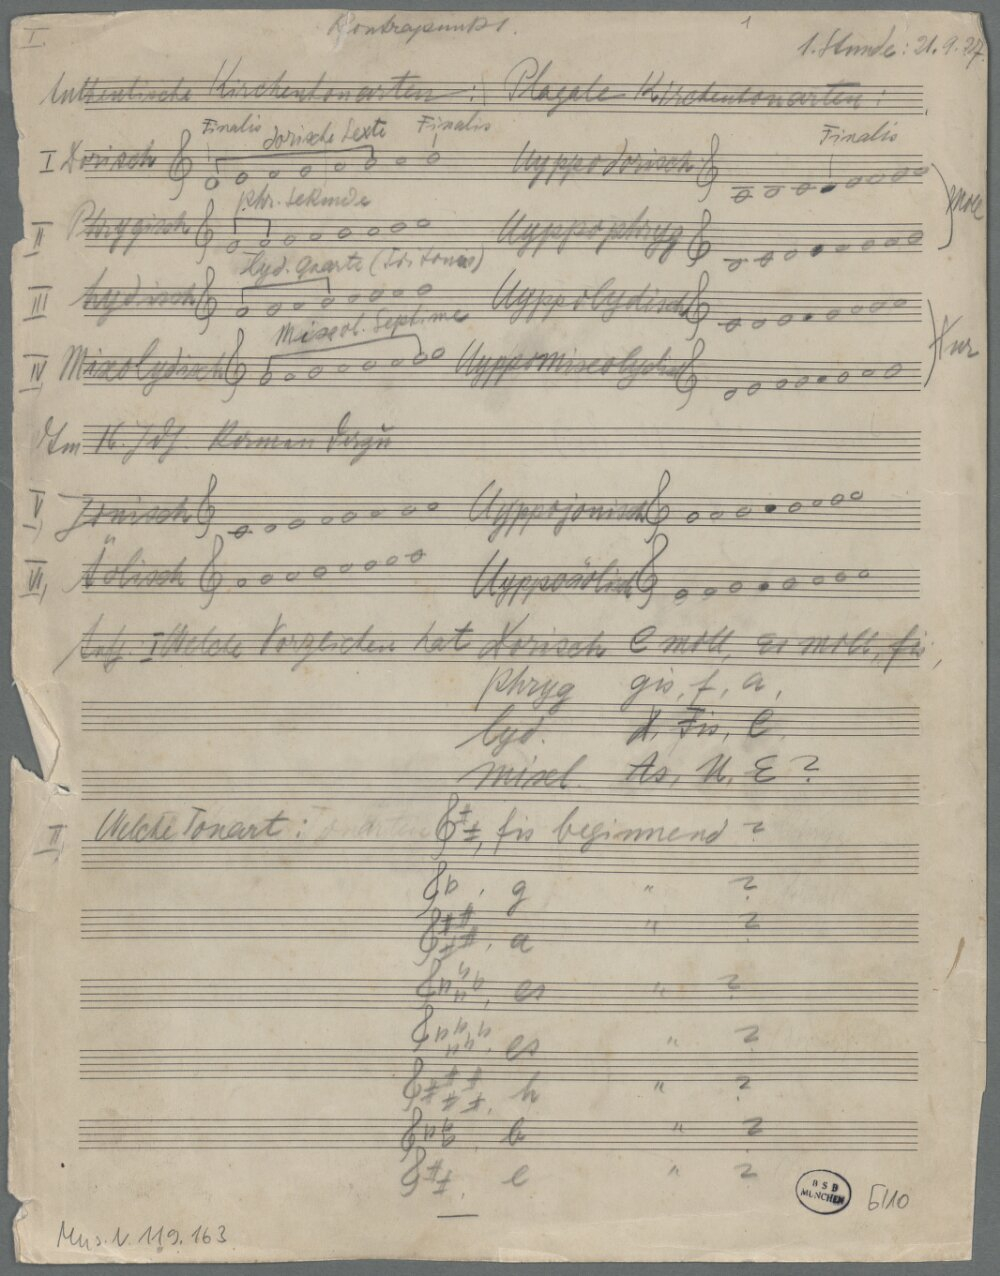 I.
Kontrapunkt 1.
1
1. Stunde: 21.9.27.
Authentische Kirchentonarten: Plagale Kirchentonarten:
Finalis dorische Sexte Finalis Finalis
I Dorisch Hyppodorisch
Moll
phr. Sekunde
II Phrygisch Hyppophryg
lyd. Quarte (Tritonus)
III Lydisch Hyppolydisch
Mixol. Septime
Dur
IV Mixolydisch Hyppomixolydisch
Im 16. Jdh. kamen dazu
V, Jonisch Hyppojonisch
VI, Äolisch Hyppoäolisch
Aufg. I Welche Vorzeichen hat Dorisch C moll, es moll, fis,
phryg gis, f, a,
lyd. D, Fis, C,
mixol. As, H, E ?
II Welche Tonart: ♯♯, fis beginnend ?
♭, g " ?
♯♯♯♯, a " ?
♭♭♭♭, es " ?
♭♭♭♭♭, es " ?
♯♯♯♯♯, h " ?
♭♭♭, b " ?
♯♯, e " ?
BSB
MÜNCHEN
5/10
Mus. N. 119, 163